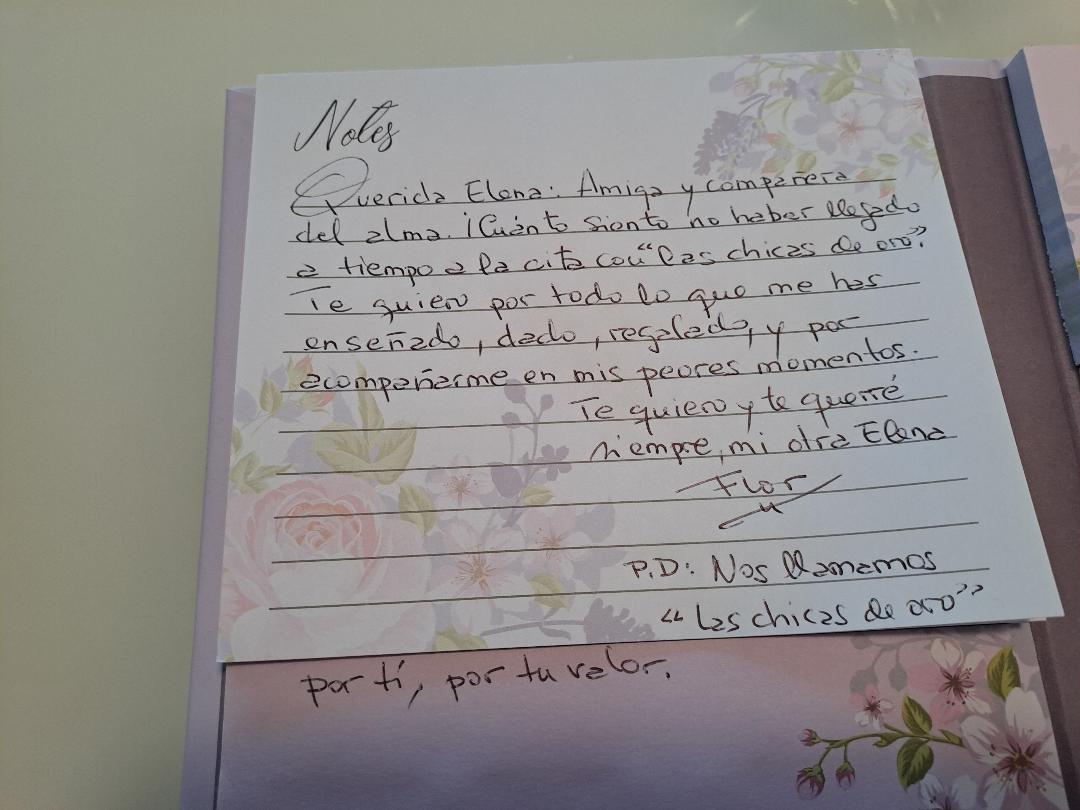 Notes
Querida Elena: Amiga y compañera
del alma. ¡Cuánto siento no haber llegado
a tiempo a la cita con "las chicas de oro".
Te quiero por todo lo que me has
enseñado, dado, regalado, y por
acompañarme en mis peores momentos.
Te quiero y te querré
siempre, mi otra Elena
Flor
P.D: Nos llamamos
"Las chicas de oro"
por tí, por tu valor.